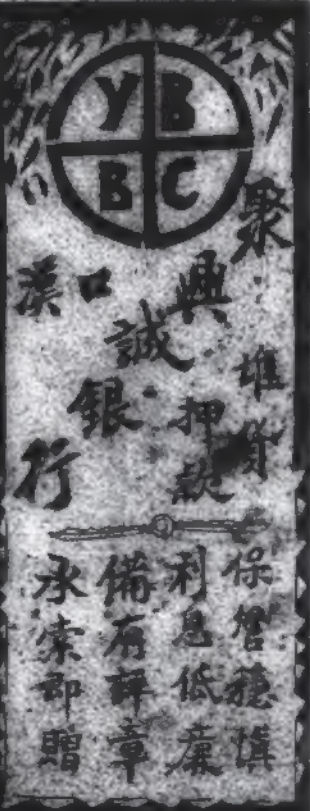 YB
BC
聚興誠銀行
漢口
堆貨
押款
保管穩慎
利息低廉
備有詳章
承索即贈